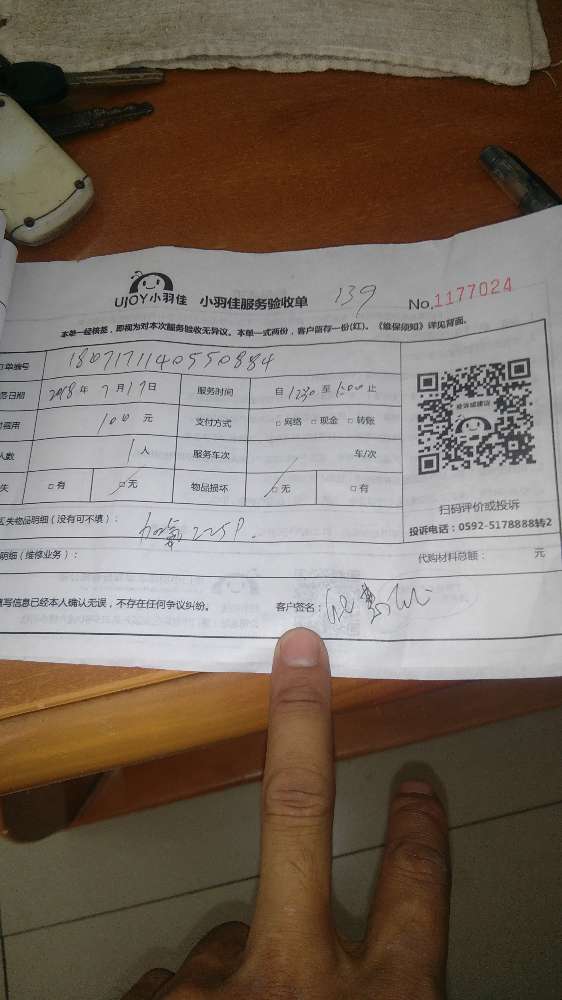 UJOY小羽佳 小羽佳服务验收单 139 No.1177024
本单一经核签，即视为对本次服务验收无异议。本单一式两份，客户留存一份(红)。《维保须知》详见背面。
订单编号 1807171140550884
日期 2018年 7月17日 服务时间 自 1230 至 1:00 止
费用 100 元 支付方式 □网络 □现金 □转账
人数 1人 服务车次 车/次
失 □有 □无 物品损坏 □无 □有
失物品明细（没有可不填）： 加氟 22SP.
明细（维修业务）： 代购材料总额： 元
填写信息已经本人确认无误，不存在任何争议纠纷。 客户签名：
投诉或建议
扫码评价或投诉
投诉电话：0592-5178888转2